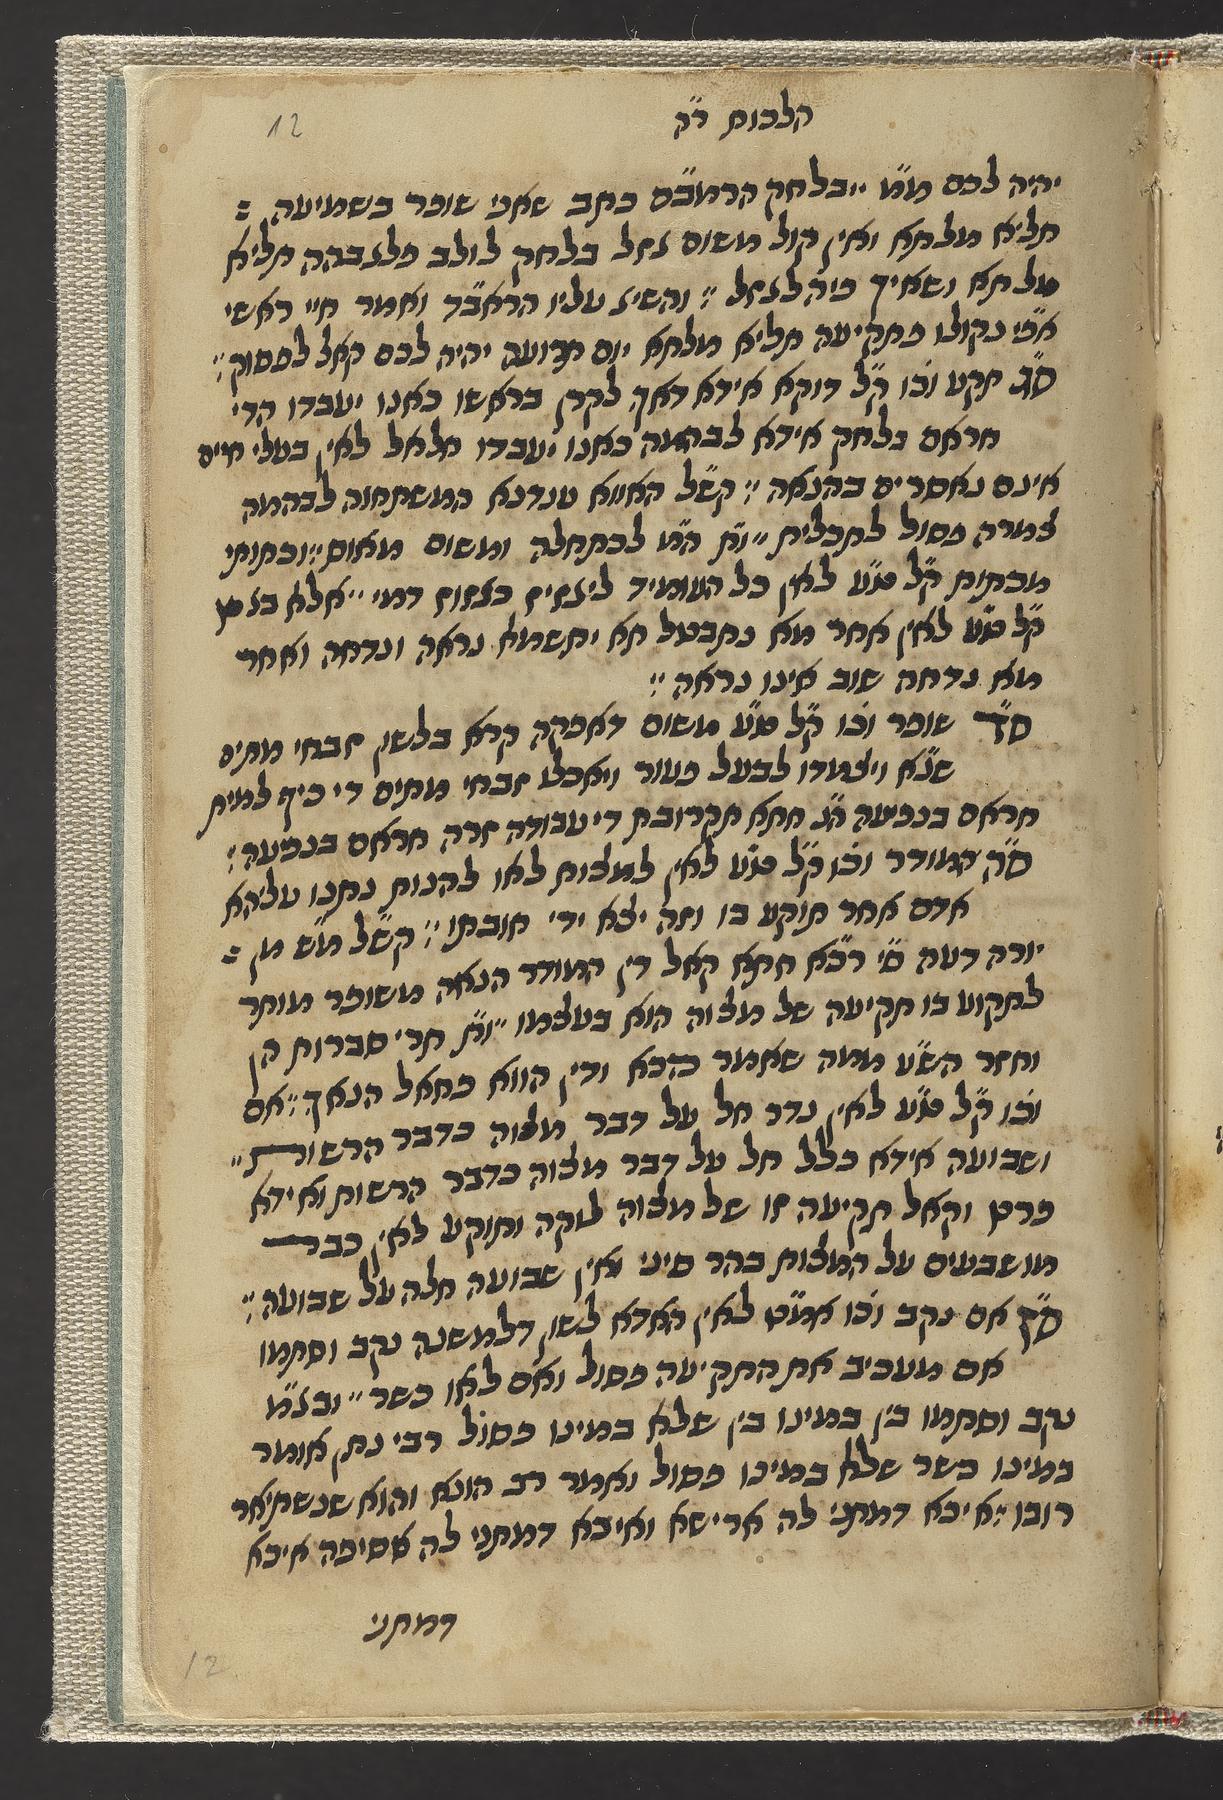 הלכות ר״ה
12
יהיה לכם מ״מ ״בלחק הרמב״ם כתב שאני שופר בשמיעה =
תליא מלתא ואין קול משום גזל בלחק לולב דלגבהה תליא
מלתא ושאיך פיה לגזל ״: והשיג עליו הראב״ד ואמר חיי ראשי
אפי׳ נקולו בתקיעה תליא מלתא יום תרועה יהיה לכם קאל לפסוק ״:
ס״ג תקע וכו׳ ק״ל דוקא אידא דאך לקרן בראשו כאנו יעבדו הדי
חראם בלחק אידא לבהמה כאנו יעבדו חלאל לאין בעלי חיים
אינם נאסרים בהנאה ״: קש״ל האווא ענדנא המשתחוה לבהמה
צמרה פסול לתכלית ״ ות׳ ה״מ לכתחלה ומשום מאוס ״: וכתותי
מכתות ק״ל ט״ע לאין כל העומיד ליגזיז כגזוז דמי ״ אלא בגט
ק״ל ט״ע לאין אחר מא נתבטל תא יתשמא נראה ונדחה ואחר
מא נדחה שוב אינו נראה ״:
ס״ד שופר וכו׳ ק״ל ט״ע משום דאפקה קרא בלשון זבחי מתים
שנ״א ויצמדו לבעל פעור ויאכלו זבחי מתים די כיף למית
חראם בנפעה ה״ג חתא תקרובת די עבודה זרה חראם בנפעה :
ס״ה המודר וכו׳ ק״ל ט״ע לאין למצות לאו להנות נתנו עליהא
אדם אחר תוקע בו וזה יצא ידי חובתו ״: קש״ל מ״ש מן =
יורה דעה ס״י רכ״א חתא קאל דין המודר הנאה משופר מותר
לתקוע בו תקיעה של מצוה הוא בעצמו ״ ות׳ תרי סברות הן
וחזר הש״ע ממה שאמר הכא ודין הווא כחאל הנאך ״: אם
וכו׳ ק״ל ט״ע לאין נדר חל על דבר מצוה כדבר הרשות ״
ושבועה אידא כלל חל על דבר מצוה כדבר הרשות ואידא
פרט וקאל תקיעה זו של מצוה לוקה ותוקע לאין כבר
מושבעים על המצות בהר סיני ואין שבועה חלה על שבועה ״:
ס״ז אם נקב וכו׳ אמ״ט לאין האדא לשון דלמשנה נקב וסתמו
אם מעכיב את התקיעה פסול ואם לאו כשר ״ ובגמ׳
נקב וסתמו בין במינו בין שלא במינו פסול רבי נתן אומר
במינו כשר שלא במינו פסול ואמר רב הונא והוא שנשתיאר
רובו ״: איכא דמתני לה ארישא ואיכא דמתני לה אסיפה איכא
דמתני
12